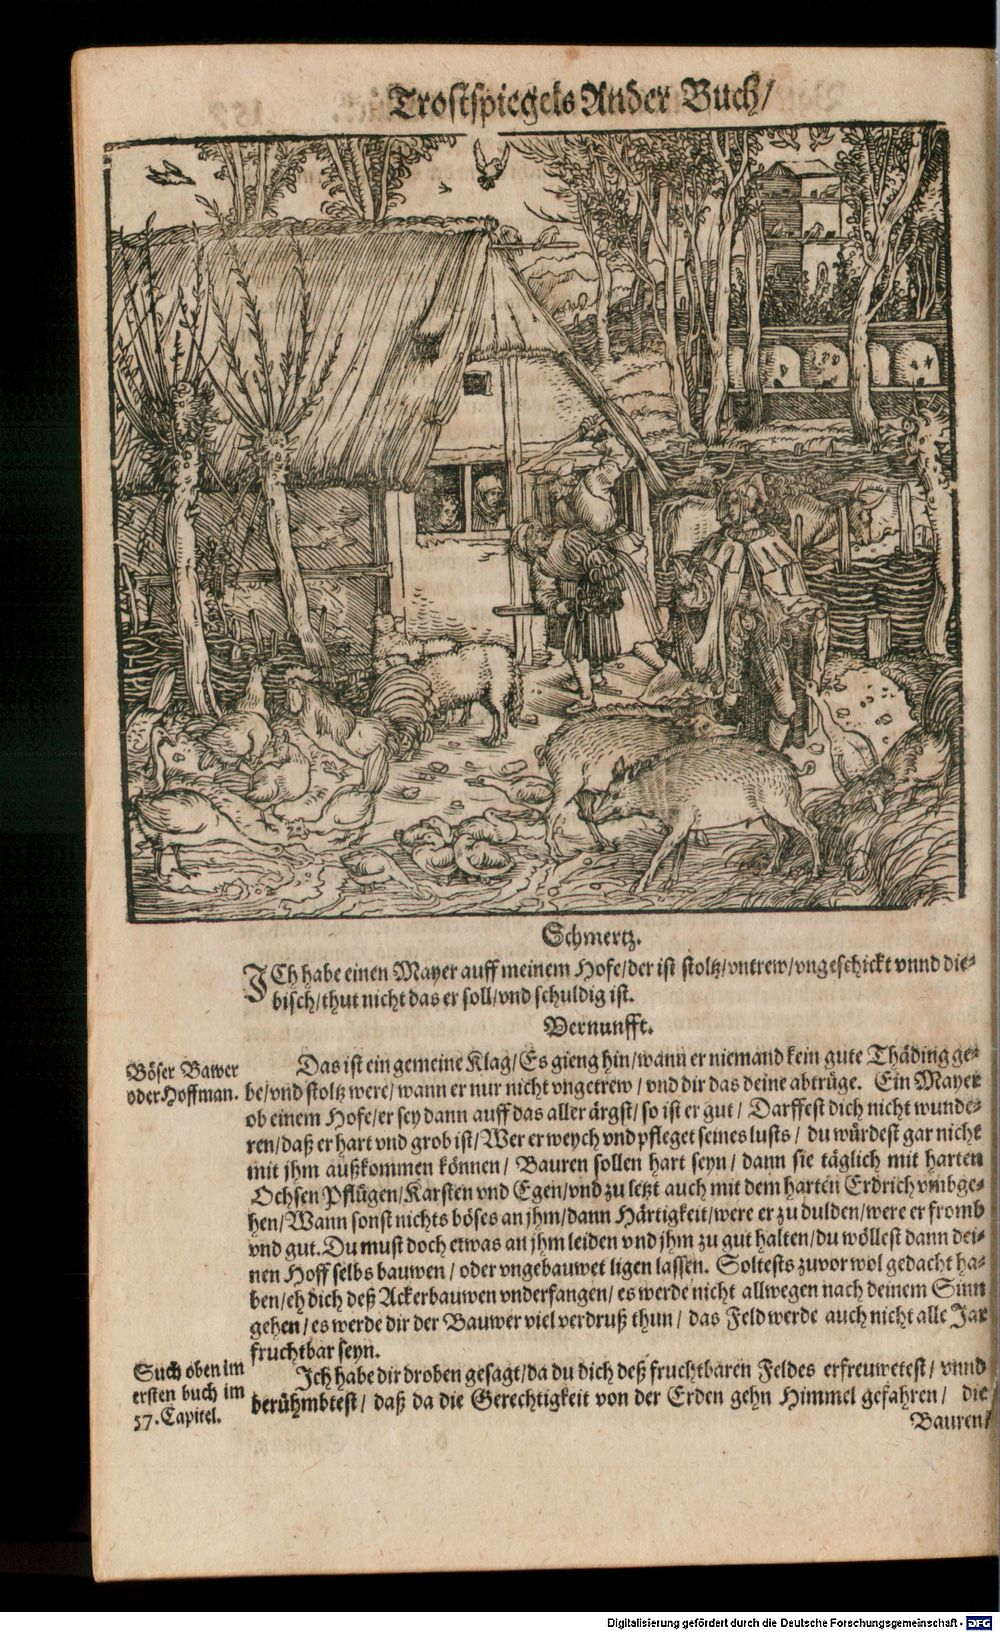 Trostspiegels Ander Buch/
Schmertz.
ICh habe einen Mayer auff meinem Hofe/der ist stoltz/vntrew/vngeschickt vnnd die-
bisch/thut nicht das er soll/vnd schuldig ist.
Vernunfft.
Böser Bawer
oder Hoffman.
Das ist ein gemeine Klag/Es gieng hin/wann er niemand kein gute Thäding ge-
be/vnd stoltz were/wann er nur nicht vngetrew/vnd dir das deine abtrüge. Ein Mayer
ob einem Hofe/er sey dann auff das aller ärgst/so ist er gut/ Darffest dich nicht wunde-
ren/daß er hart vnd grob ist/Wer er weych vnd pfleget seines lusts/ du würdest gar nicht
mit jhm außkommen können/ Bauren sollen hart seyn/ dann sie täglich mit harten
Ochsen Pflügen/Karsten vnd Egen/vnd zu letzt auch mit dem harten Erdrich vmbge-
hen/Wann sonst nichts böses an jhm/dann Härtigkeit/were er zu dulden/were er fromb
vnd gut. Du must doch etwas an jhm leiden vnd jhm zu gut halten/du wöllest dann dei-
nen Hoff selbs bauwen/ oder vngebauwet ligen lassen. Soltests zuvor wol gedacht ha-
ben/eh dich deß Ackerbauwen vnderfangen/ es werde nicht allwegen nach deinem Sinn
gehen/ es werde dir der Bauwer viel verdruß thun/ das Feld werde auch nicht alle Jar
fruchtbar seyn.
Such oben im
ersten buch im
57. Capitel.
Ich habe dir droben gesagt/da du dich deß fruchtbaren Feldes erfreuwetest/ vnnd
berühmbtest/ daß da die Gerechtigkeit von der Erden gehn Himmel gefahren/ die
Bauren/
Digitalisierung gefördert durch die Deutsche Forschungsgemeinschaft - DFG